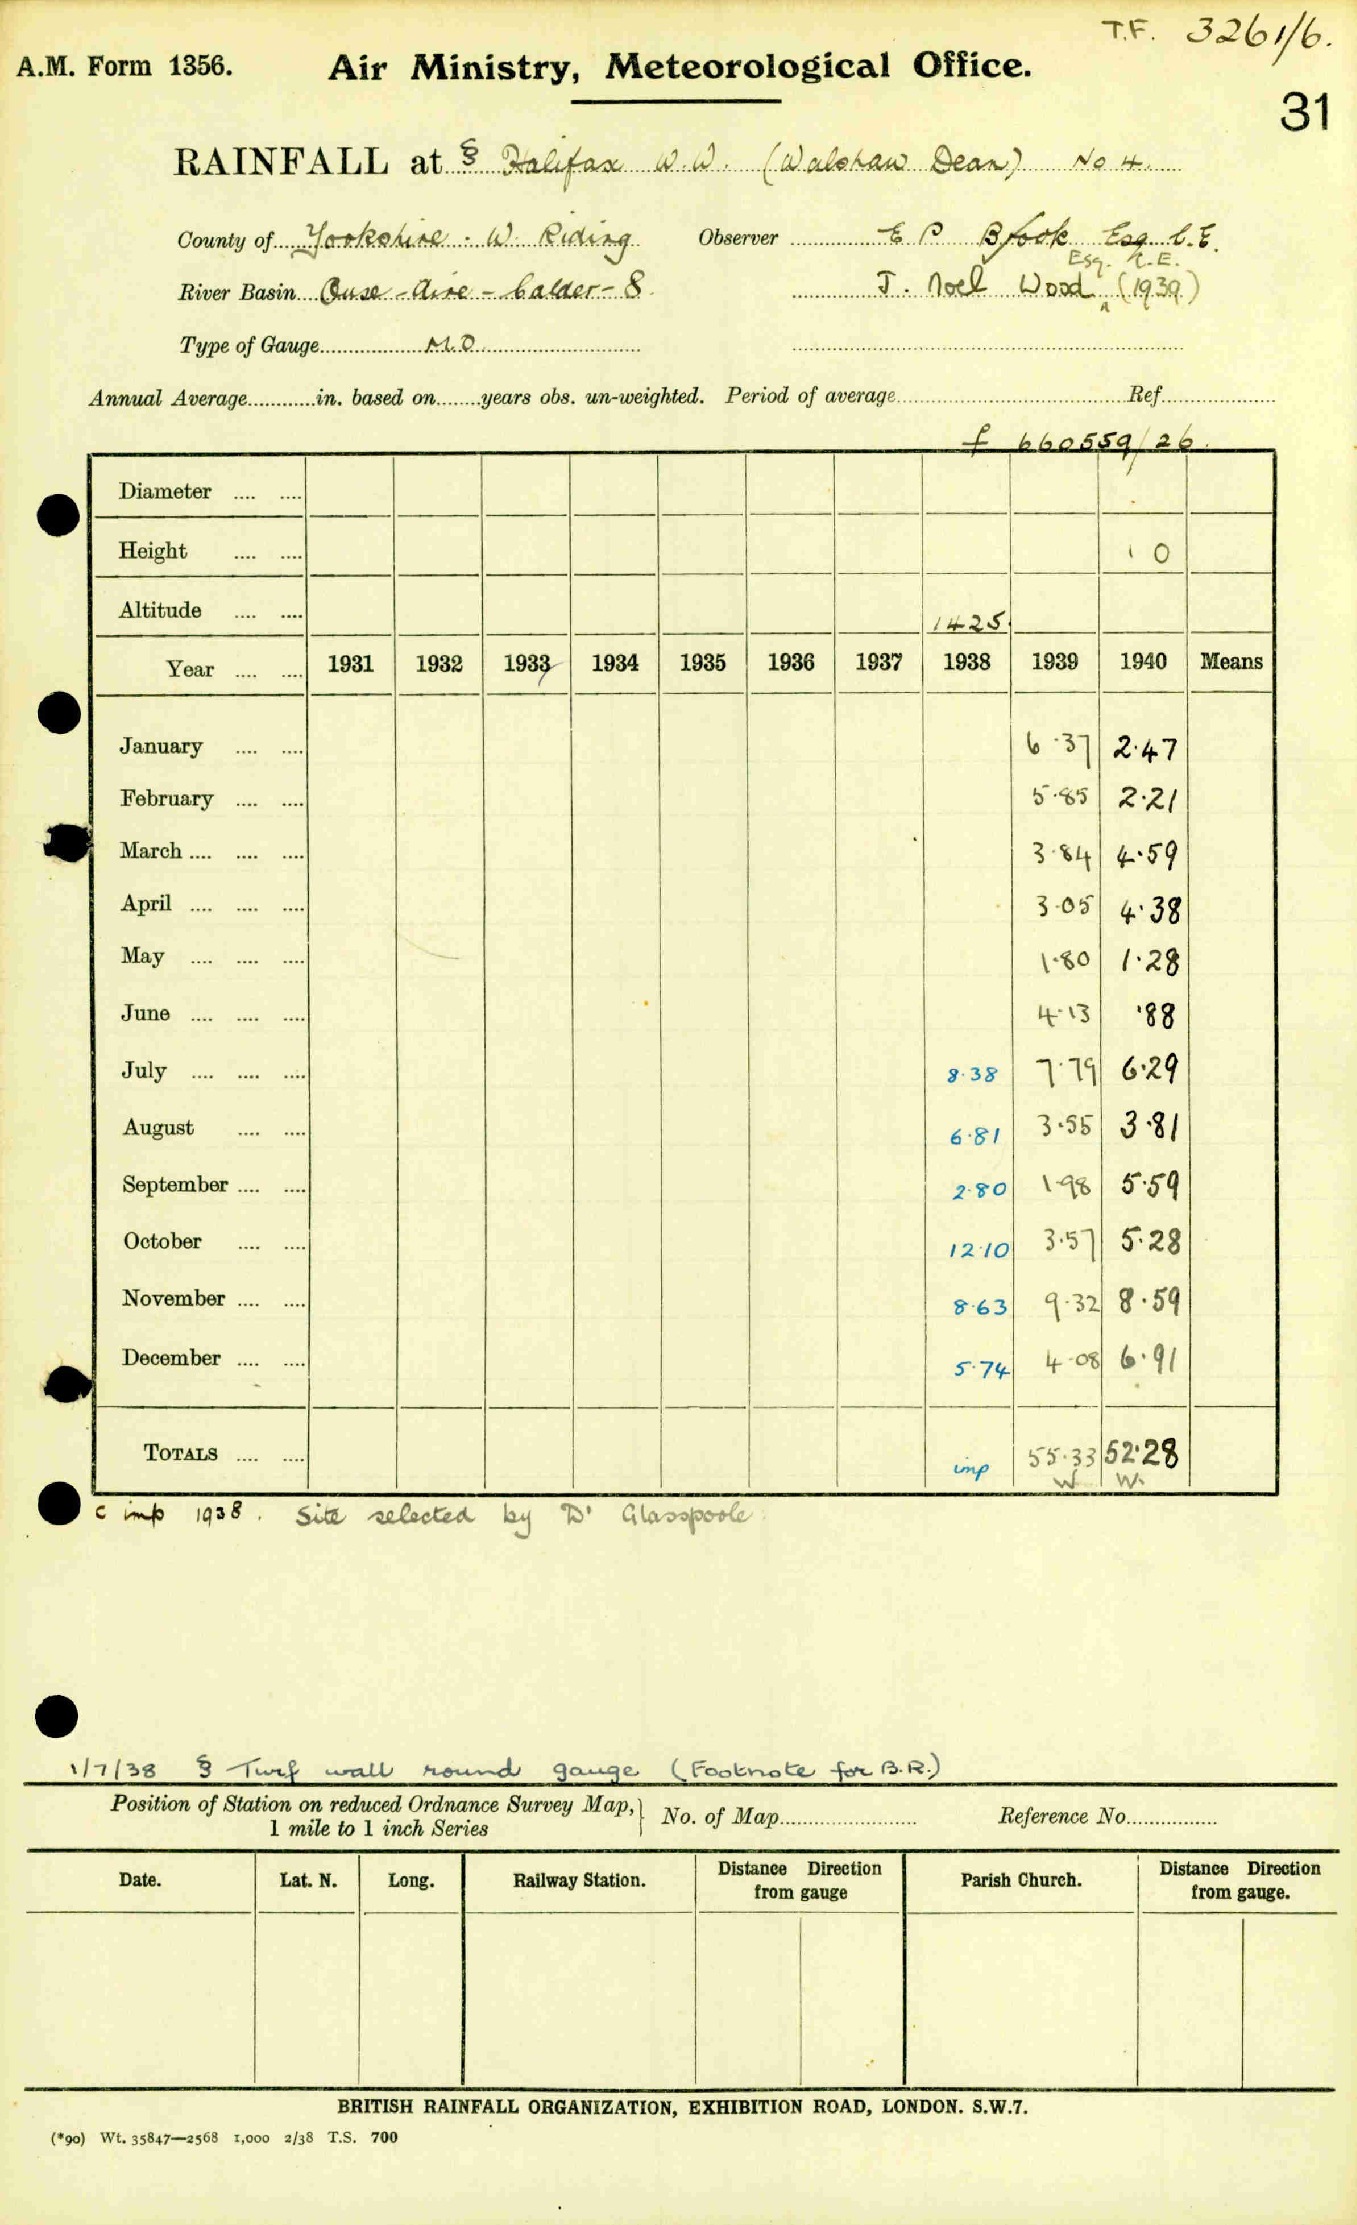 T.F. 3261/6.
A.M. Form 1356. Air Ministry, Meteorological Office.
31
RAINFALL at § Halifax W.W. (Walshaw Dean) No 4.
County of Yorkshire - W. Riding Observer E P Brook Esq. C.E.
Esq. C.E.
River Basin Ouse - Aire - Calder - 8 J. Noel Wood ^ (1939)
Type of Gauge M.O.
Annual Average............in. based on........years obs. un-weighted. Period of average.......... Ref..........
f 660559/26.
Diameter .... ....
Height .... .... 1 0
Altitude .... .... 1425.
Year .... .... 1931 1932 1933 1934 1935 1936 1937 1938 1939 1940 Means
January .... .... 6.37 2.47
February .... .... 5.85 2.21
March .... .... .... 3.84 4.59
April .... .... .... 3.05 4.38
May .... .... .... 1.80 1.28
June .... .... .... 4.13 .88
July .... .... .... 8.38 7.79 6.29
August .... .... 6.81 3.55 3.81
September .... .... 2.80 1.98 5.59
October .... .... 12.10 3.57 5.28
November .... .... 8.63 9.32 8.59
December .... .... 5.74 4.08 6.91
TOTALS .... .... imp 55.33 52.28
W W.
c imp 1938. Site selected by Dr Glasspoole
1/7/38 § Turf wall round gauge (Footnote for B.R.)
Position of Station on reduced Ordnance Survey Map, } No. of Map.......... Reference No..........
1 mile to 1 inch Series
Date. Lat. N. Long. Railway Station. Distance Direction from gauge Parish Church. Distance Direction from gauge.
BRITISH RAINFALL ORGANIZATION, EXHIBITION ROAD, LONDON. S.W.7.
(*90) Wt. 35847—2568 1,000 2/38 T.S. 700